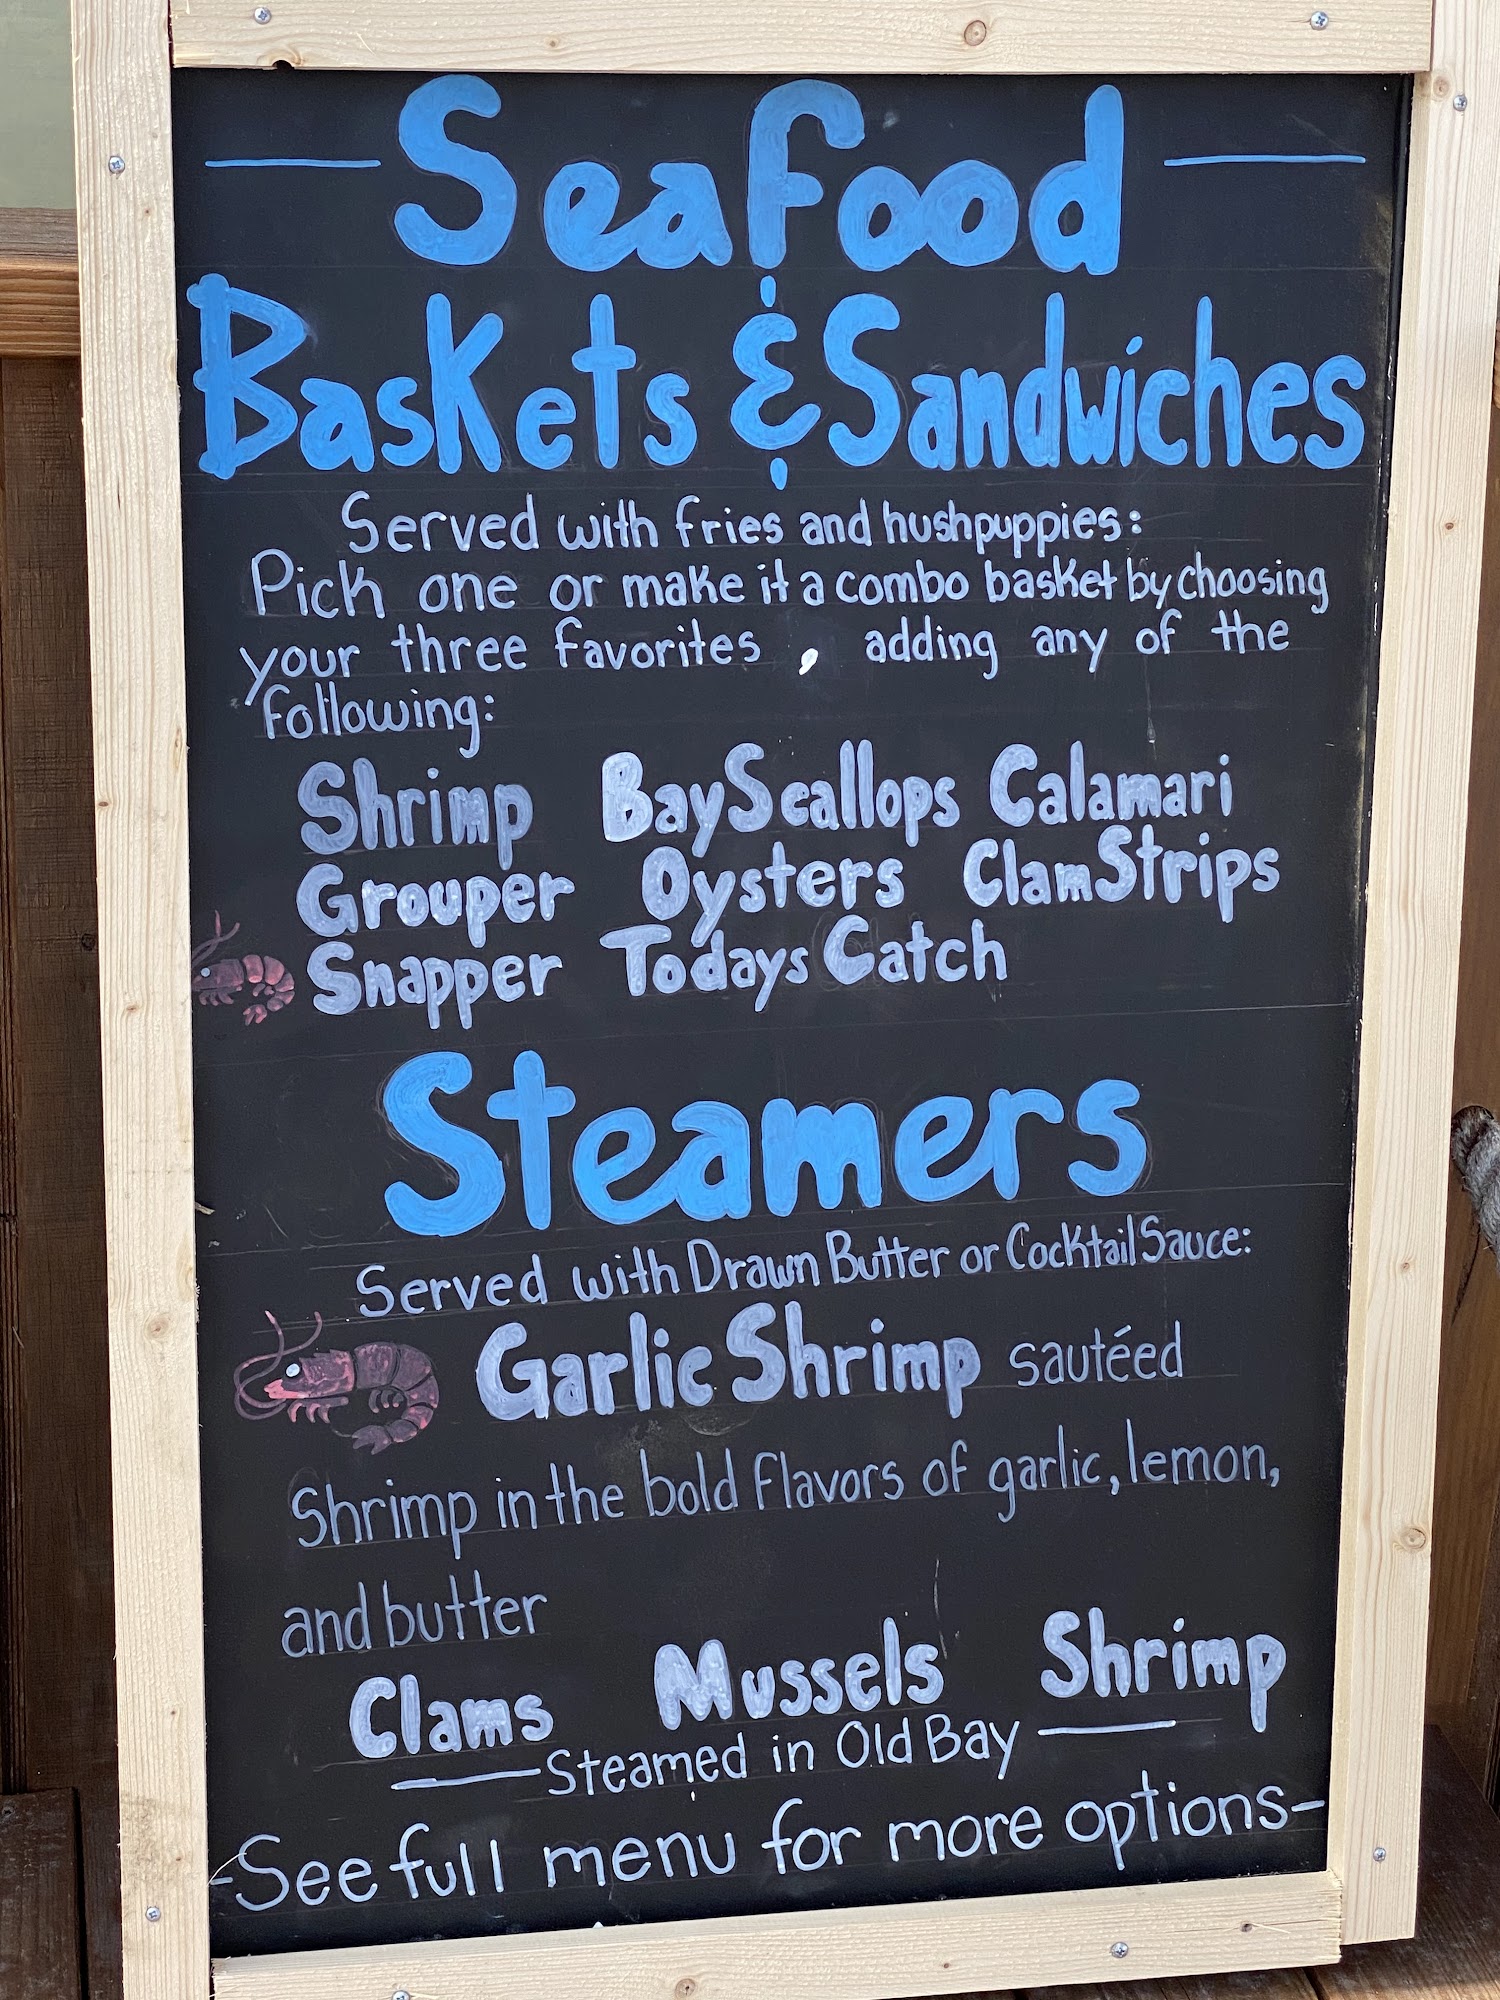 Seafood
Baskets & Sandwiches
Served with fries and hushpuppies:
Pick one or make it a combo basket by choosing
your three favorites, adding any of the
following:
Shrimp Bay Scallops Calamari
Grouper Oysters Clam Strips
Snapper Todays Catch
Steamers
Served with Drawn Butter or Cocktail Sauce:
Garlic Shrimp sautéed
Shrimp in the bold flavors of garlic, lemon,
and butter
Clams Mussels Shrimp
— Steamed in Old Bay —
-See full menu for more options-